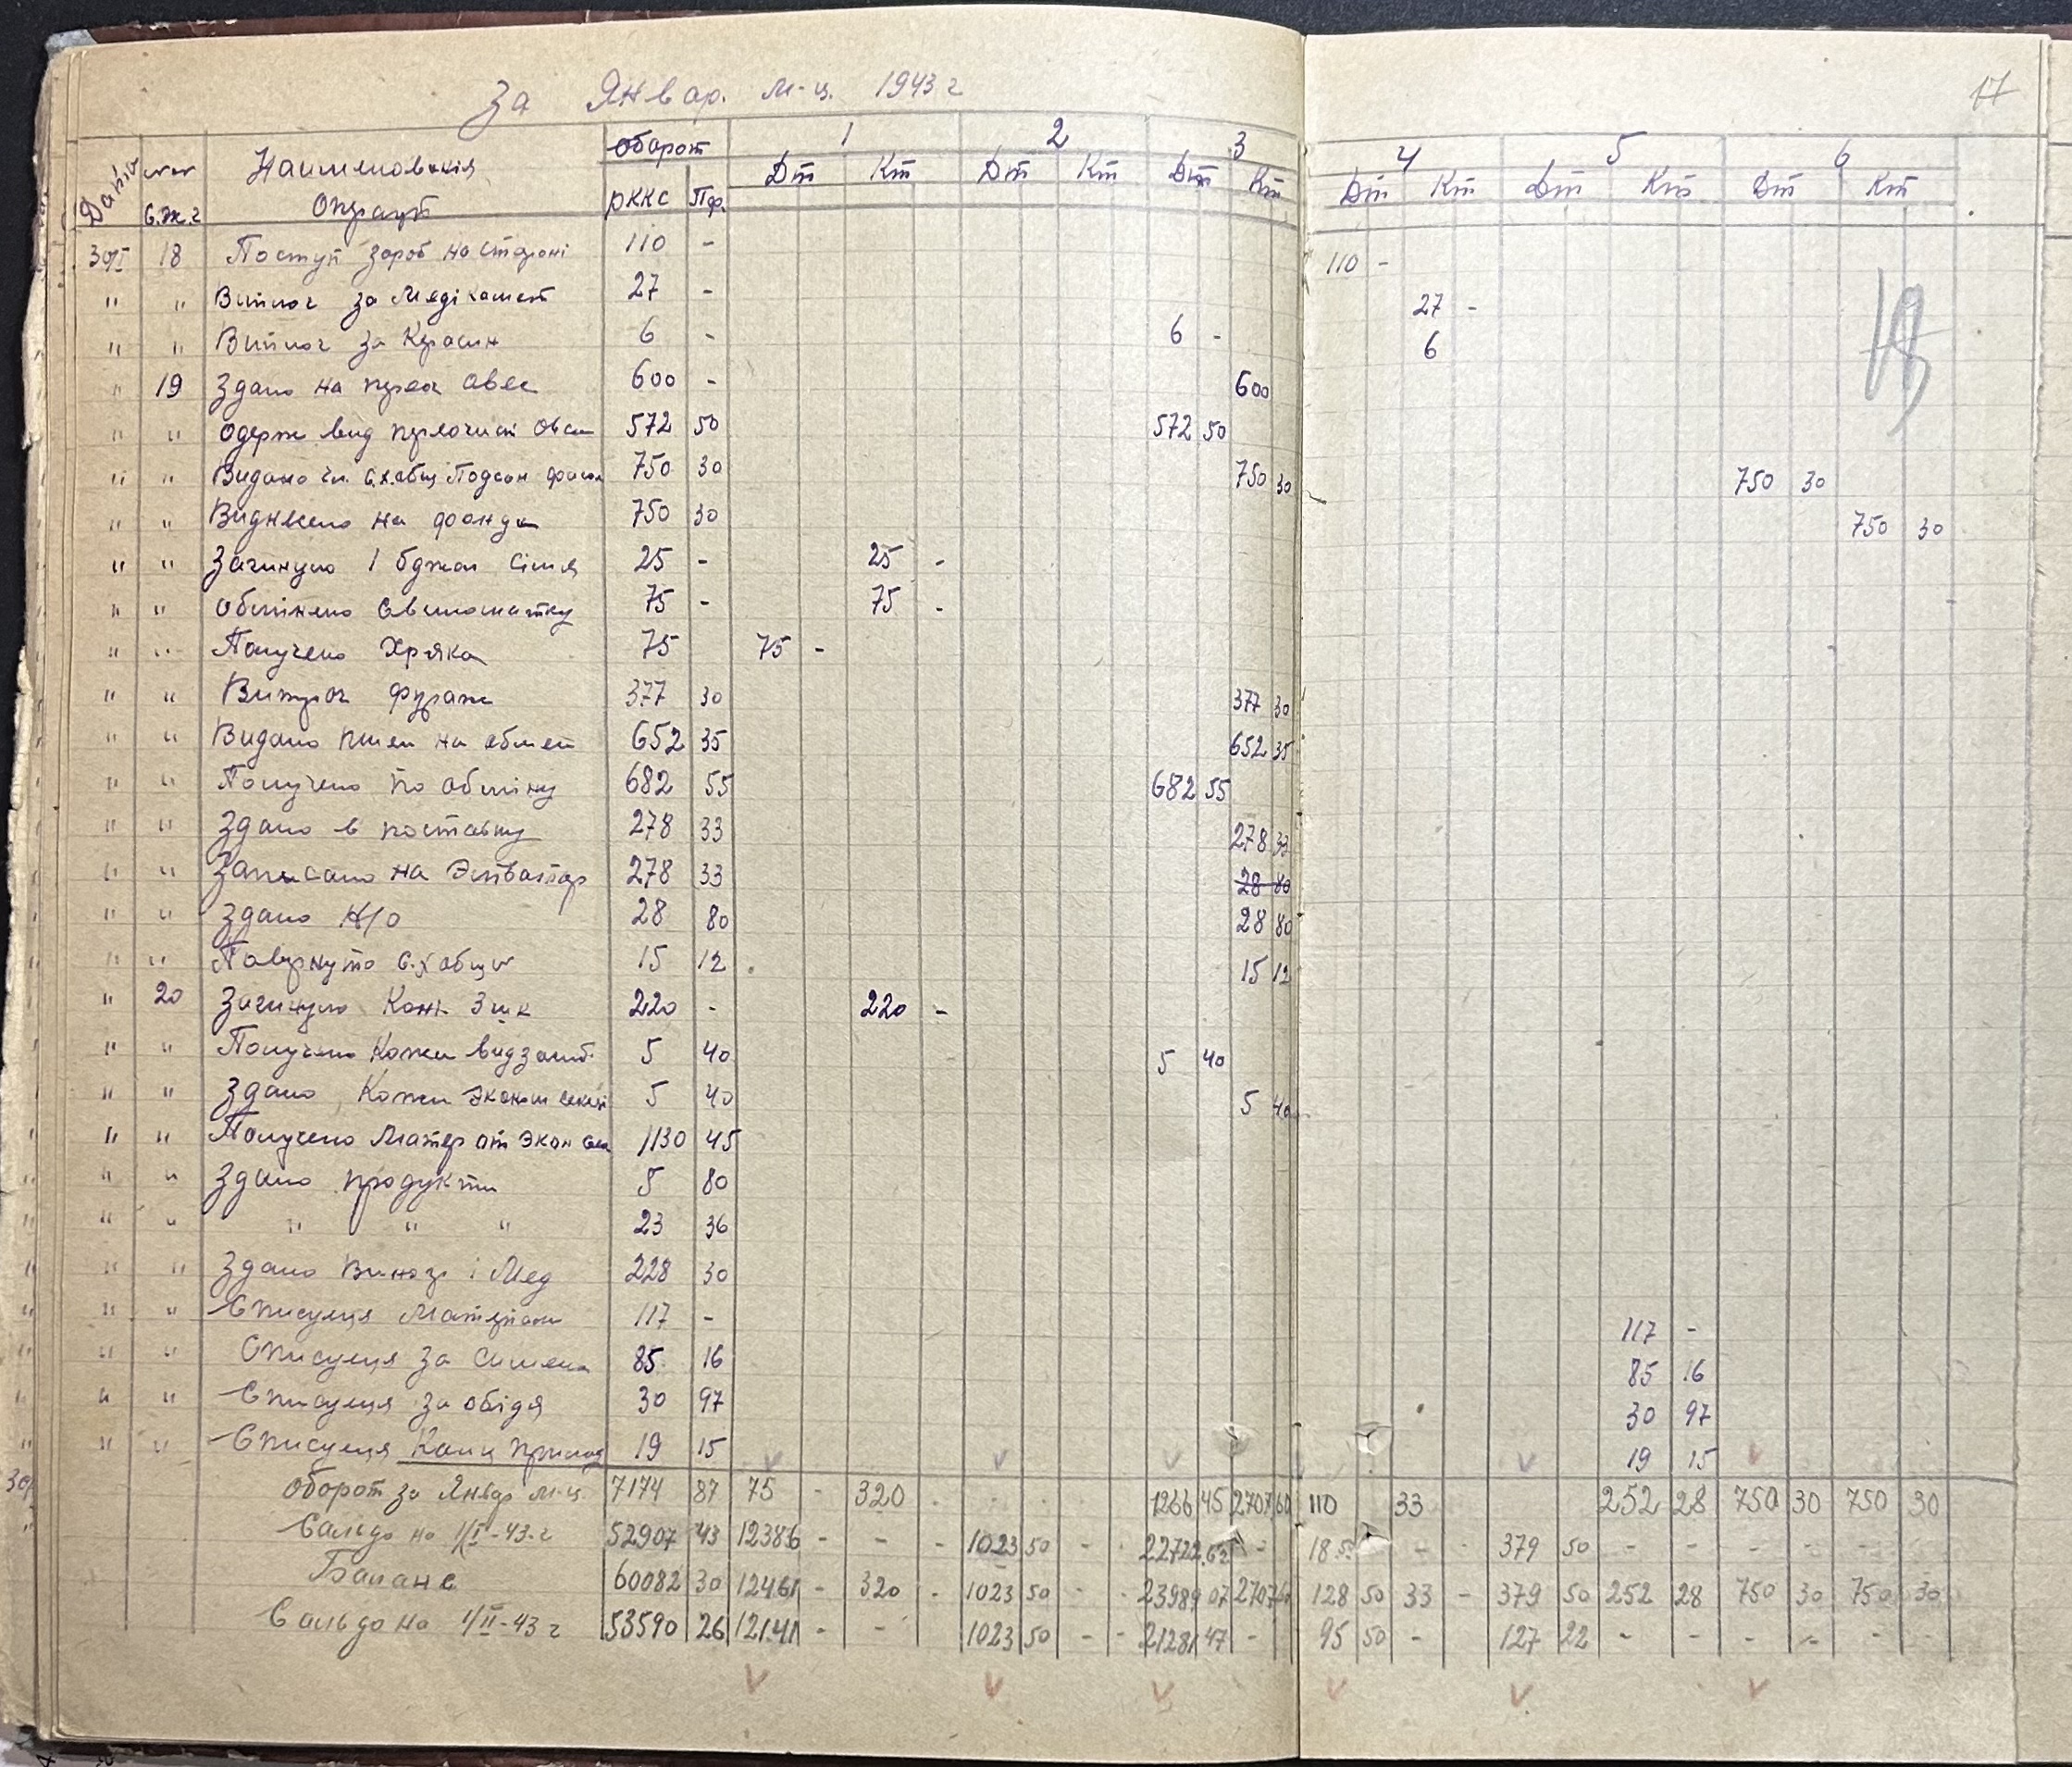 За Январ. м-ц. 1943 г
17
Дата № Наименованія оборот 1 2 3 4 5 6
с.ж.г Операцій рккс Пф. Дт Кт Дт Кт Дт Кт Дт Кт Дт Кт Дт Кт
30/I 18 Поступ зароб на стороні 110 - 110 -
" " Виплог за Медікамент 27 - 27 -
" " Виплог за Керасин 6 - 6 - 6
" 19 Здано на перер овес 600 - 600
" " одерж вид перочист овса 572 50 572 50
" " Видано чл. с.х.общ Подсон 750 30 750 30 750 30
" " Виднесено на фонда 750 30 750 30
" " Загинуло 1 бджол сімя 25 - 25 -
" " обмінено свиноматку 75 - 75 -
" " Получено Хряка 75 75 -
" " Витроч фураж 377 30 377 30
" " Видано пшен на обмен 652 35 652 35
" " Получено по обміну 682 55 682 55
" " Здано в поставку 278 33 278 33
" " Записано на 278 33 28 80
" " Здано Н/о 28 80 28 80
" " Повернуто с.х общи 15 12 15 12
" 20 Загинуло Коні 3 шк 220 - 220 -
" " Получено Кожи вид загиб. 5 40 5 40
" " Здано Кожи эконом секції 5 40 5 40
" " Получено Матер от экон сек 1130 45
" " Здано продукти 5 80
" " " " " 23 36
" " Здано і Мед 228 30
" " Списуеця Матеріали 117 - 117 -
" " Списуеця за симена 85 16 85 16
" " Списуеця за обідя 30 97 30 97
" " Списуеця Канц прилад 19 15 19 15
30/ оборот за Январ м-ц. 7174 87 75 - 320 - 1266 45 2707 60 110 33 252 28 750 30 750 30
" Сальдо на 1/I-43-г 52907 43 12386 - - - 1023 50 - - 22722 62 - 18 50 - - 379 50 - - - - - -
Баланс 60082 30 12461 - 320 - 1023 50 - 23989 07 2707 60 128 50 33 - 379 50 252 28 750 30 750 30
Сальдо на 1/II-43 г 53590 26 12141 - - - 1023 50 - - 21281 47 - 95 50 - 127 22 - - - - - -